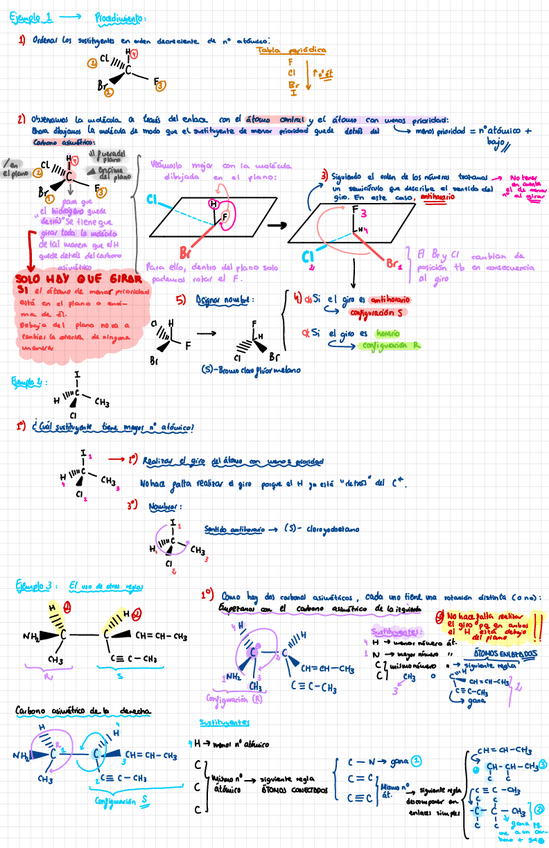 Ejemplo 1 → Procedimiento:
1) Ordenar los sustituyentes en orden decreciente de nº atómico:
Tabla periódica
F
Cl
Br
I
↑ nº át.
H 4
2 Cl
C
Br 1
F 3
2) Observamos la molécula a través del enlace con el átomo central y el átomo con menos prioridad:
Ahora dibujamos la molécula de modo que el sustituyente de menor prioridad quede detrás del
carbono asimétrico:
menos prioridad = nº atómico + bajo
/ en el plano
fuera del plano
encima del plano
para que
"el hidrógeno quede
detrás" se tiene que
girar toda la molécula
de tal manera que el H
quede detrás del carbono
asimétrico
Veámoslo mejor con la molécula
dibujada en el plano:
Cl
H
F
Br
Para ello, dentro del plano solo
podemos rotar el F.
3) Siguiendo el orden de los números trazamos
un semicírculo que describe el sentido del
giro. En este caso, antihorario
No tener
en cuenta
el de menor
al girar
F 3
H 4
Cl 2
Br 1
El Br y Cl cambian de
posición tb en consecuencia
al giro
SOLO HAY QUE GIRAR
SI el átomo de menor prioridad
está en el plano o enci-
ma de él.
Debajo del plano no va a
cambiar la materia de ninguna
manera
5) Asignar nombre:
Cl
H
F
Br
F
H
Cl
Br
(S)-Bromo cloro flúor metano
4) Si el giro es antihorario
configuración S
Si el giro es horario
configuración R
Ejemplo 2:
I
H
C
CH₃
Cl
1º) ¿Cuál sustituyente tiene mayor nº atómico?
I 1
H 4
C
CH₃ 3
Cl 2
2º) Realizar el giro del átomo con menos prioridad
No hace falta realizar el giro porque el H ya está "detrás" del C*.
3º) Nombrar:
I 1
H 4
C
CH₃ 3
Cl 2
Sentido antihorario → (S)- cloroyodoetano
Ejemplo 3: El uso de otras reglas
H
H
NH₂
C
C
CH=CH-CH₃
CH₃
C≡C-CH₃
R
S
1º) Como hay dos carbonos asimétricos, cada uno tiene una rotación distinta (o no):
Empezamos con el carbono asimétrico de la izquierda
NH₂
CH₃
CH=CH-CH₃
C≡C-CH₃
Configuración (R)
Sustituyentes:
H → menor número át.
N → mayor número "
C
C
mismo número → siguiente regla
CH₃
No hace falta realizar
el giro ya en ambos
el "H" está debajo
del plano
!!!
ÁTOMOS ENLAZADOS
CH=CH-CH₃
C≡C-CH₃
gana
Carbono asimétrico de la derecha
H
NH₂
C
C
CH=CH-CH₃
CH₃
C≡C-CH₃
Configuración S
Sustituyentes
4 H → menor nº atómico
C
C
C
Mismo nº atómico → siguiente regla
ÁTOMOS CONECTADOS
C-N → gana 1
C=C
C≡C
Mismo nº át.
siguiente regla
descomponer en
enlaces simples
CH=CH-CH₃
CH-CH-CH₃
C C
3
C≡C-CH₃
C C
-C-C-CH₃
C C
2